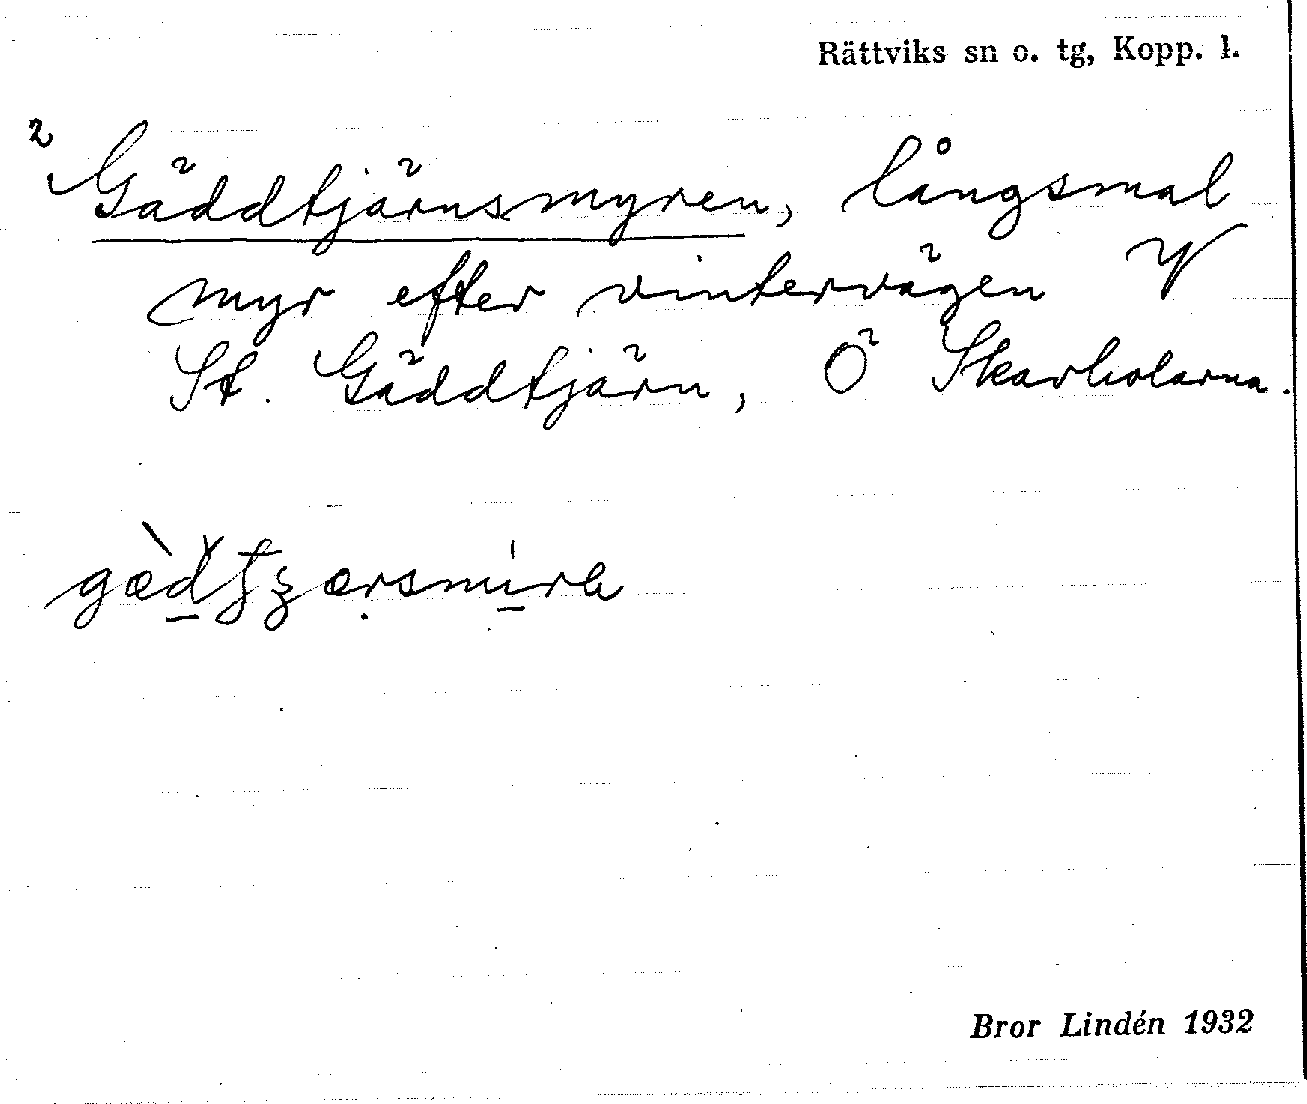 Rättviks sn o. tg, Kopp. l.
2 Gäddtjärnsmyren, långsmal
myr efter vintervägen V
St. Gäddtjärn, Ö Skarholarna.
Bror Lindén 1932